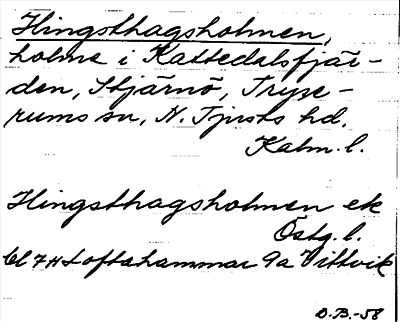 Hingsthagsholmen,
holme i Kattedalsfjär-
den, Stjärnö, Tryse-
rums sn, N. Tjusts hd.
Kalm. l.
Hingsthagsholmen ek
Östg. l.
7H Loftahammar 9a Vittvik
O.B.-58